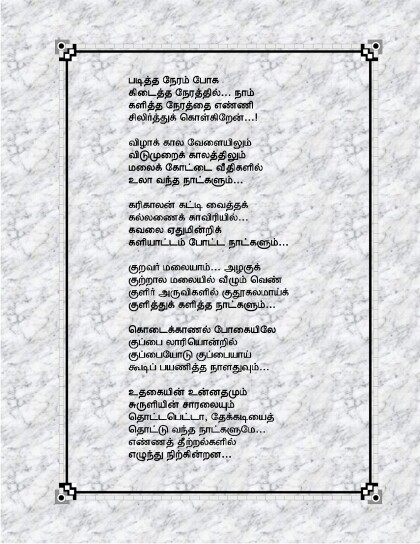 படித்த நேரம் போக
கிடைத்த நேரத்தில்... நாம்
களித்த நேரத்தை எண்ணி
சிலிர்த்துக் கொள்கிறேன்...!
விழாக் கால வேளையிலும்
விடுமுறைக் காலத்திலும்
மலைக் கோட்டை வீதிகளில்
உலா வந்த நாட்களும்...
கரிகாலன் கட்டி வைத்தக்
கல்லணைக் காவிரியில்...
கவலை ஏதுமின்றிக்
களியாட்டம் போட்ட நாட்களும்...
குறவர் மலையாம்... அழகுக்
குற்றால மலையில் வீழும் வெண்
குளிர் அருவிகளில் குதூகலமாய்க்
குளித்துக் களித்த நாட்களும்...
கொடைக்காணல் போகையிலே
குப்பை லாரியொன்றில்
குப்பையோடு குப்பையாய்
கூடிப் பயணித்த நாளதுவும்...
உதகையின் உன்னதமும்
சுருளியின் சாரலையும்
தொட்டபெட்டா, தேக்கடியைத்
தொட்டு வந்த நாட்களுமே...
எண்ணத் தீற்றல்களில்
எழுந்து நிற்கின்றன...